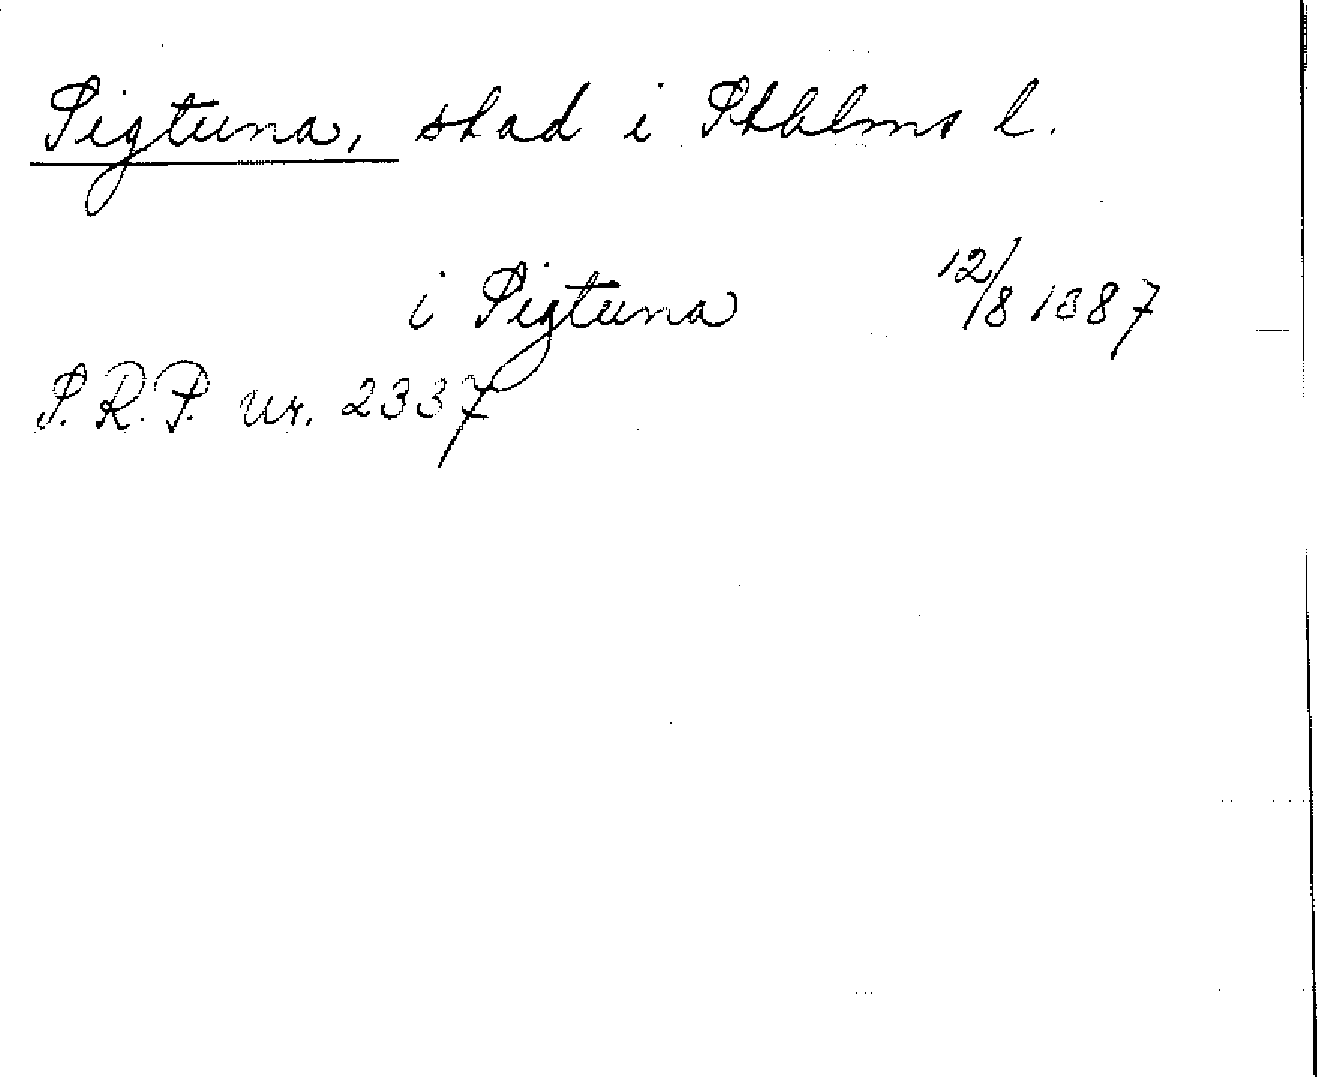 Sigtuna, stad i Sthlms l.
i Sigtuna 12/8 1387
S.R.P. nr. 2337